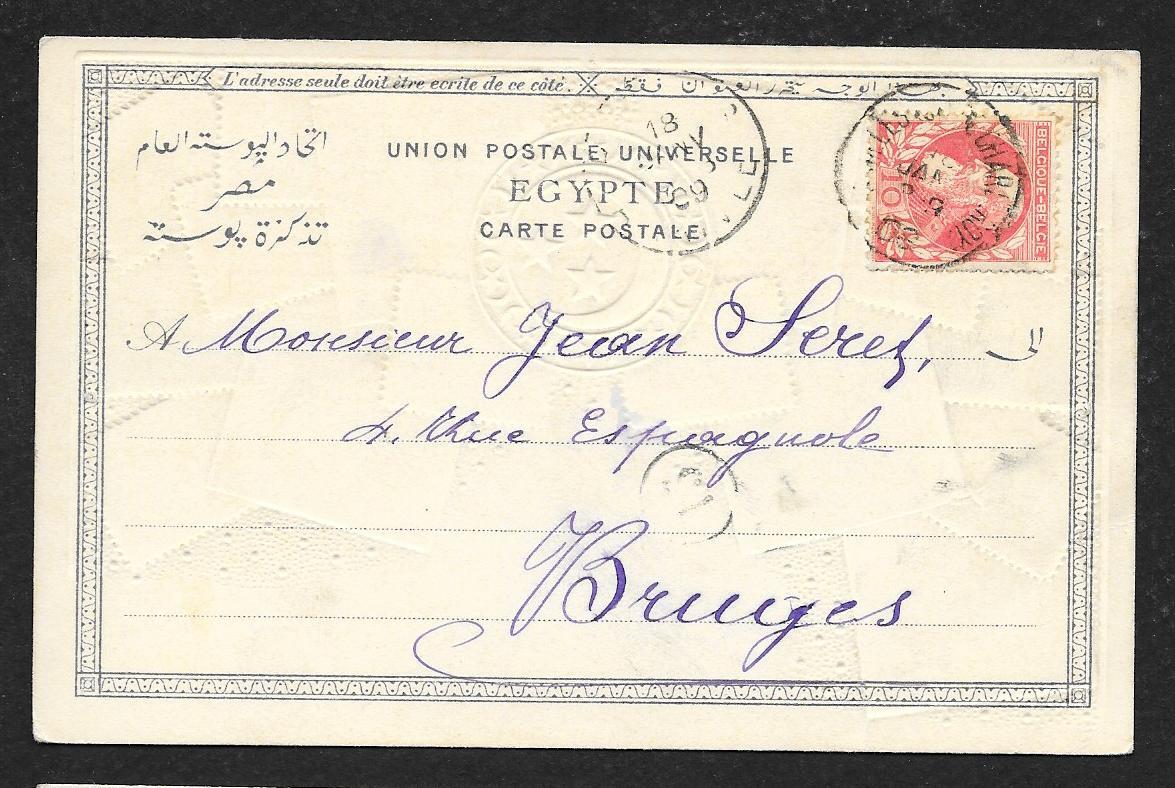 L'adresse seule doit être ecrite de ce côté.
اتحاد البوسته العام
مصر
تذكرة بوسته
UNION POSTALE UNIVERSELLE
EGYPTE
CARTE POSTALE
18
09
BELGIQUE-BELGIË
10
A Monsieur Jean Seret,
4. Rue Espagnole
Bruges